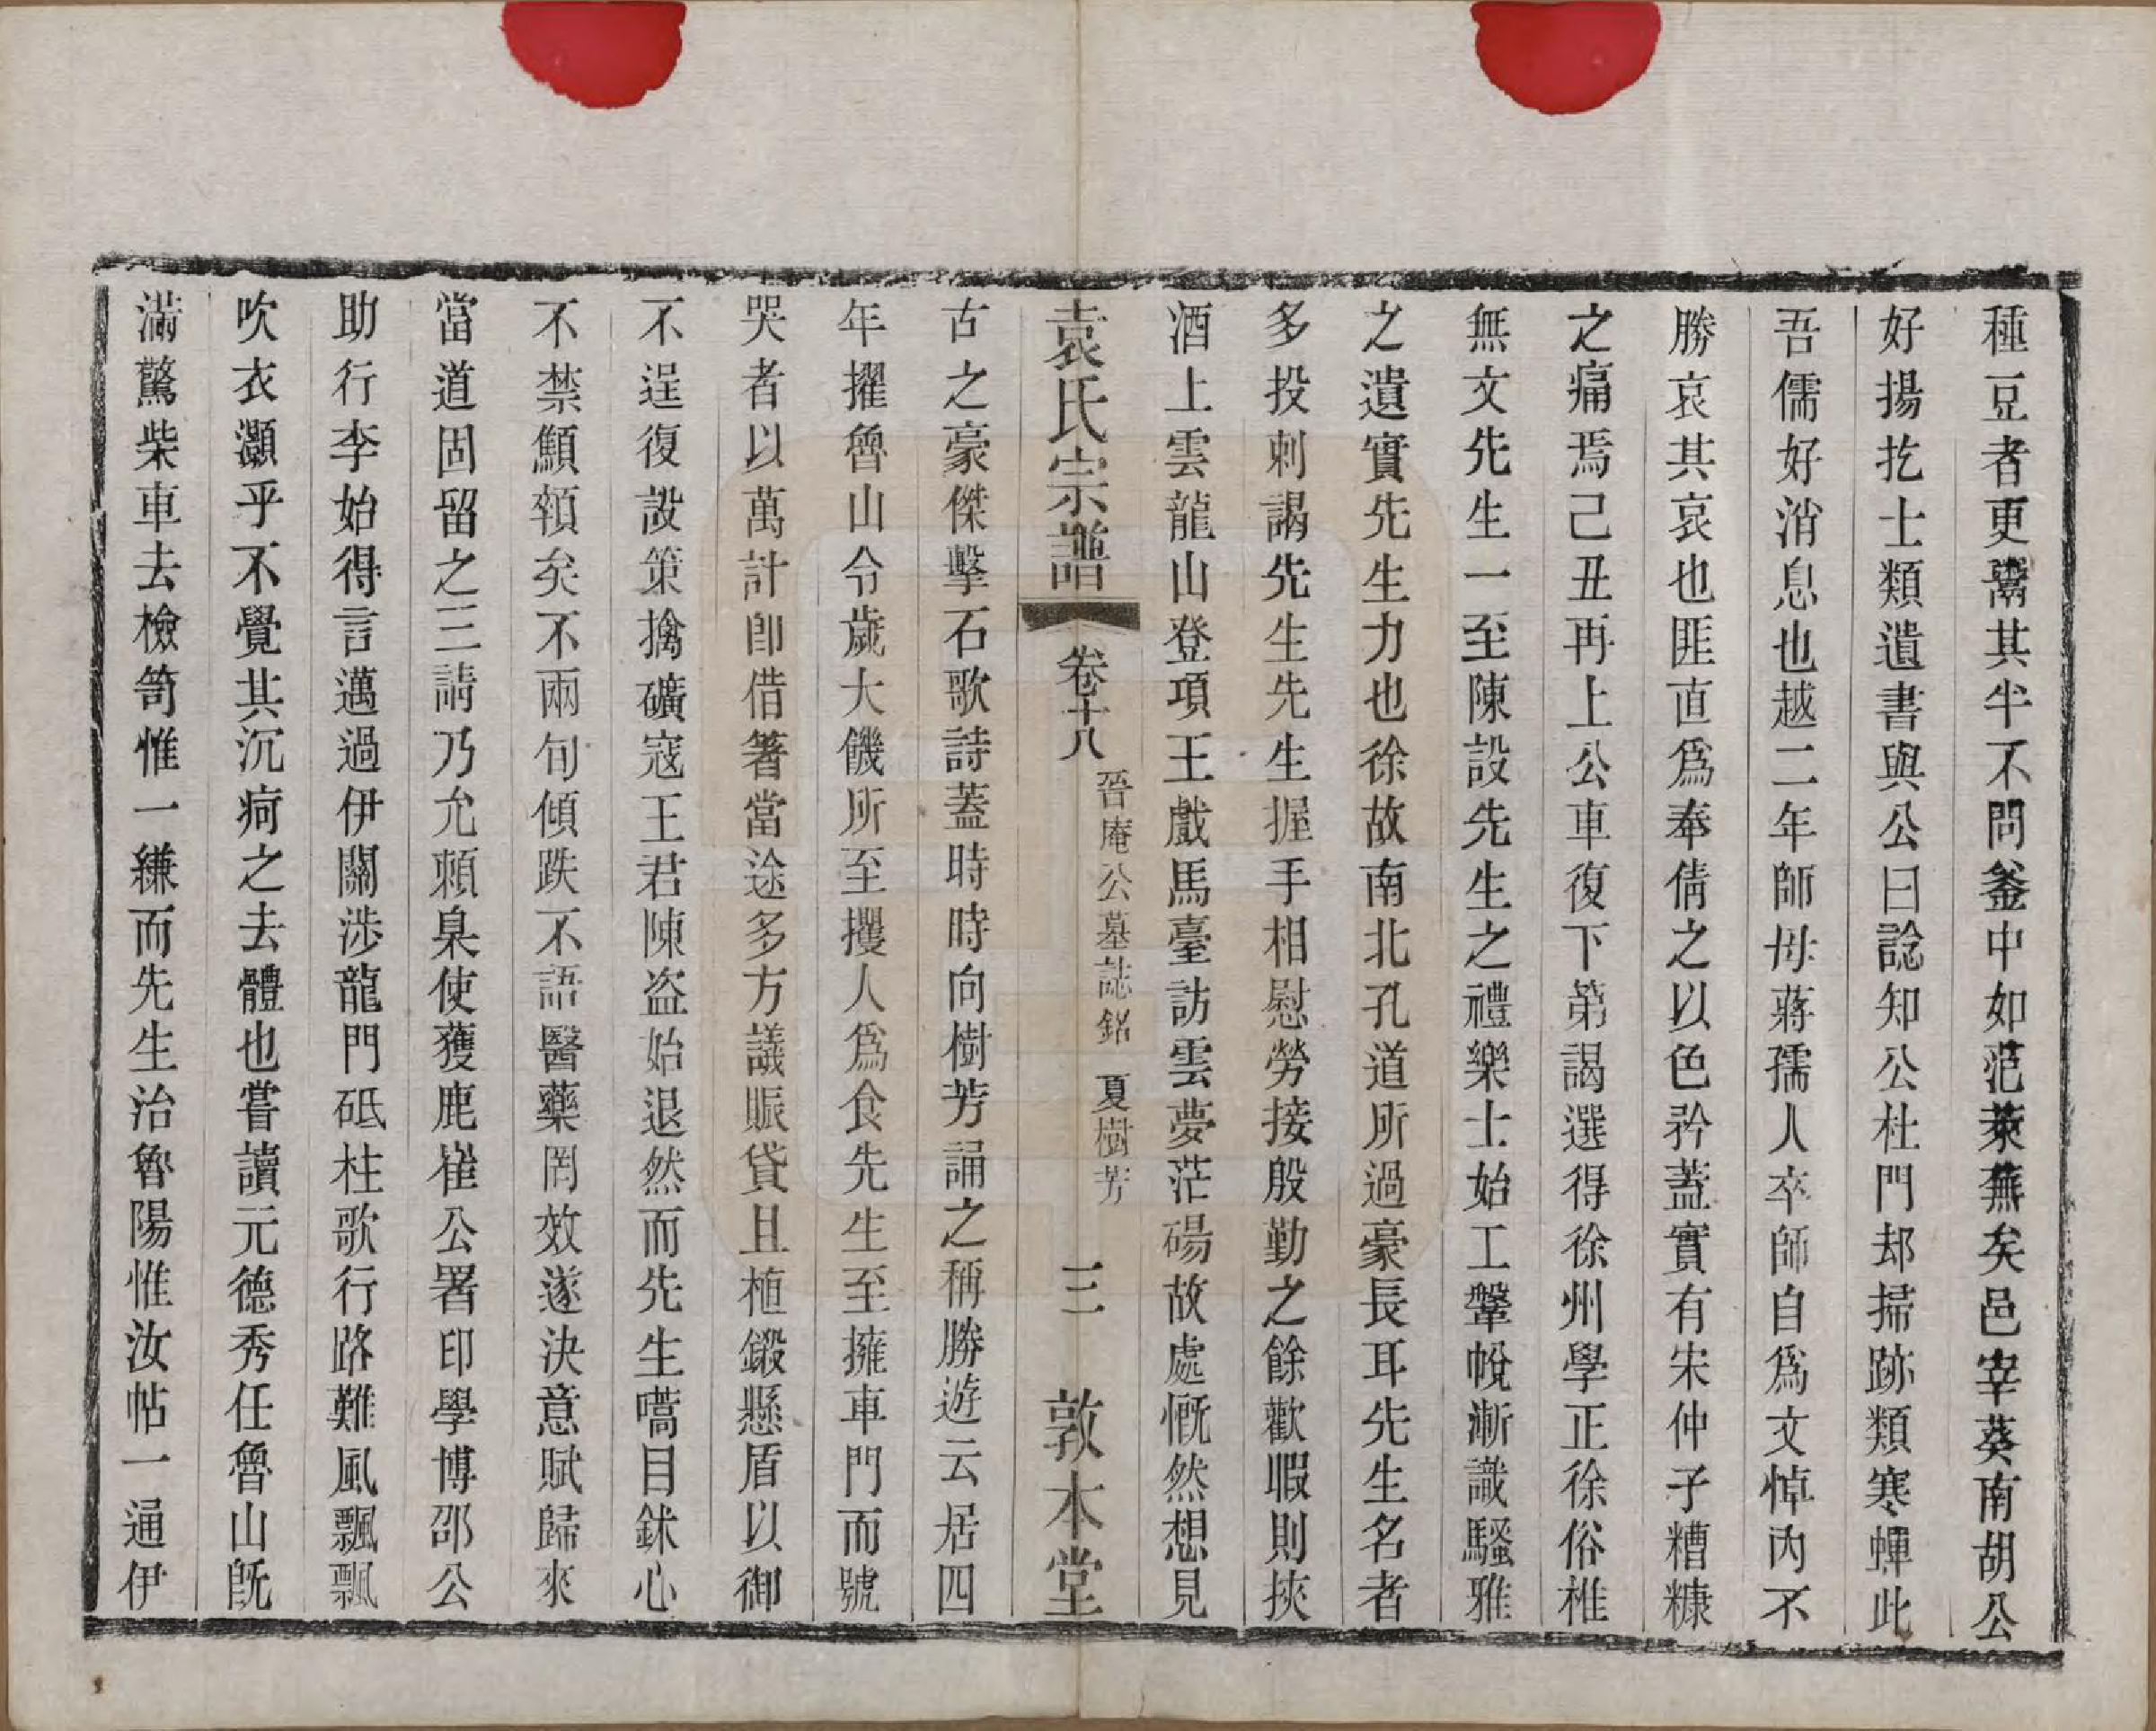 種豆者更鬻其半不問釜中如范萊蕪矣邑宰葵南胡公
好揚扢士類遺書與公曰諗知公杜門却掃跡類寒蟬此
吾儒好消息也越二年師母蔣孺人卒師自爲文悼內不
勝哀其哀也匪直爲奉倩之以色矜蓋實有宋仲子糟糠
之痛焉己丑再上公車復下第謁選得徐州學正徐俗椎
無文先生一至陳設先生之禮樂士始工鞶帨漸識騷雅
之遺實先生力也徐故南北孔道所過豪長耳先生名者
多投刺謁先生先生握手相慰勞接殷勤之餘歡暇則挾
酒上雲龍山登項王戲馬臺訪雲夢茫碭故處慨然想見
袁氏宗譜 卷十八 晉庵公墓誌銘 夏樹芳 三 敦本堂
古之豪傑擊石歌詩蓋時時向樹芳誦之稱勝遊云居四
年擢魯山令歲大饑所至攫人爲食先生至擁車門而號
哭者以萬計卽借箸當途多方議賑貸且植鍛懸盾以御
不逞復設策擒礦寇王君陳盗始退然而先生嚆目鉥心
不禁顛頷矣不兩旬傾跌不語醫藥罔效遂決意賦歸來
當道固留之三請乃允頼臬使獲鹿崔公署印學博邵公
助行李始得言邁過伊闕涉龍門砥柱歌行路難風飄飄
吹衣灝乎不覺其沉疴之去體也嘗讀元德秀任魯山旣
滿駕柴車去檢笥惟一縑而先生治魯陽惟汝帖一通伊